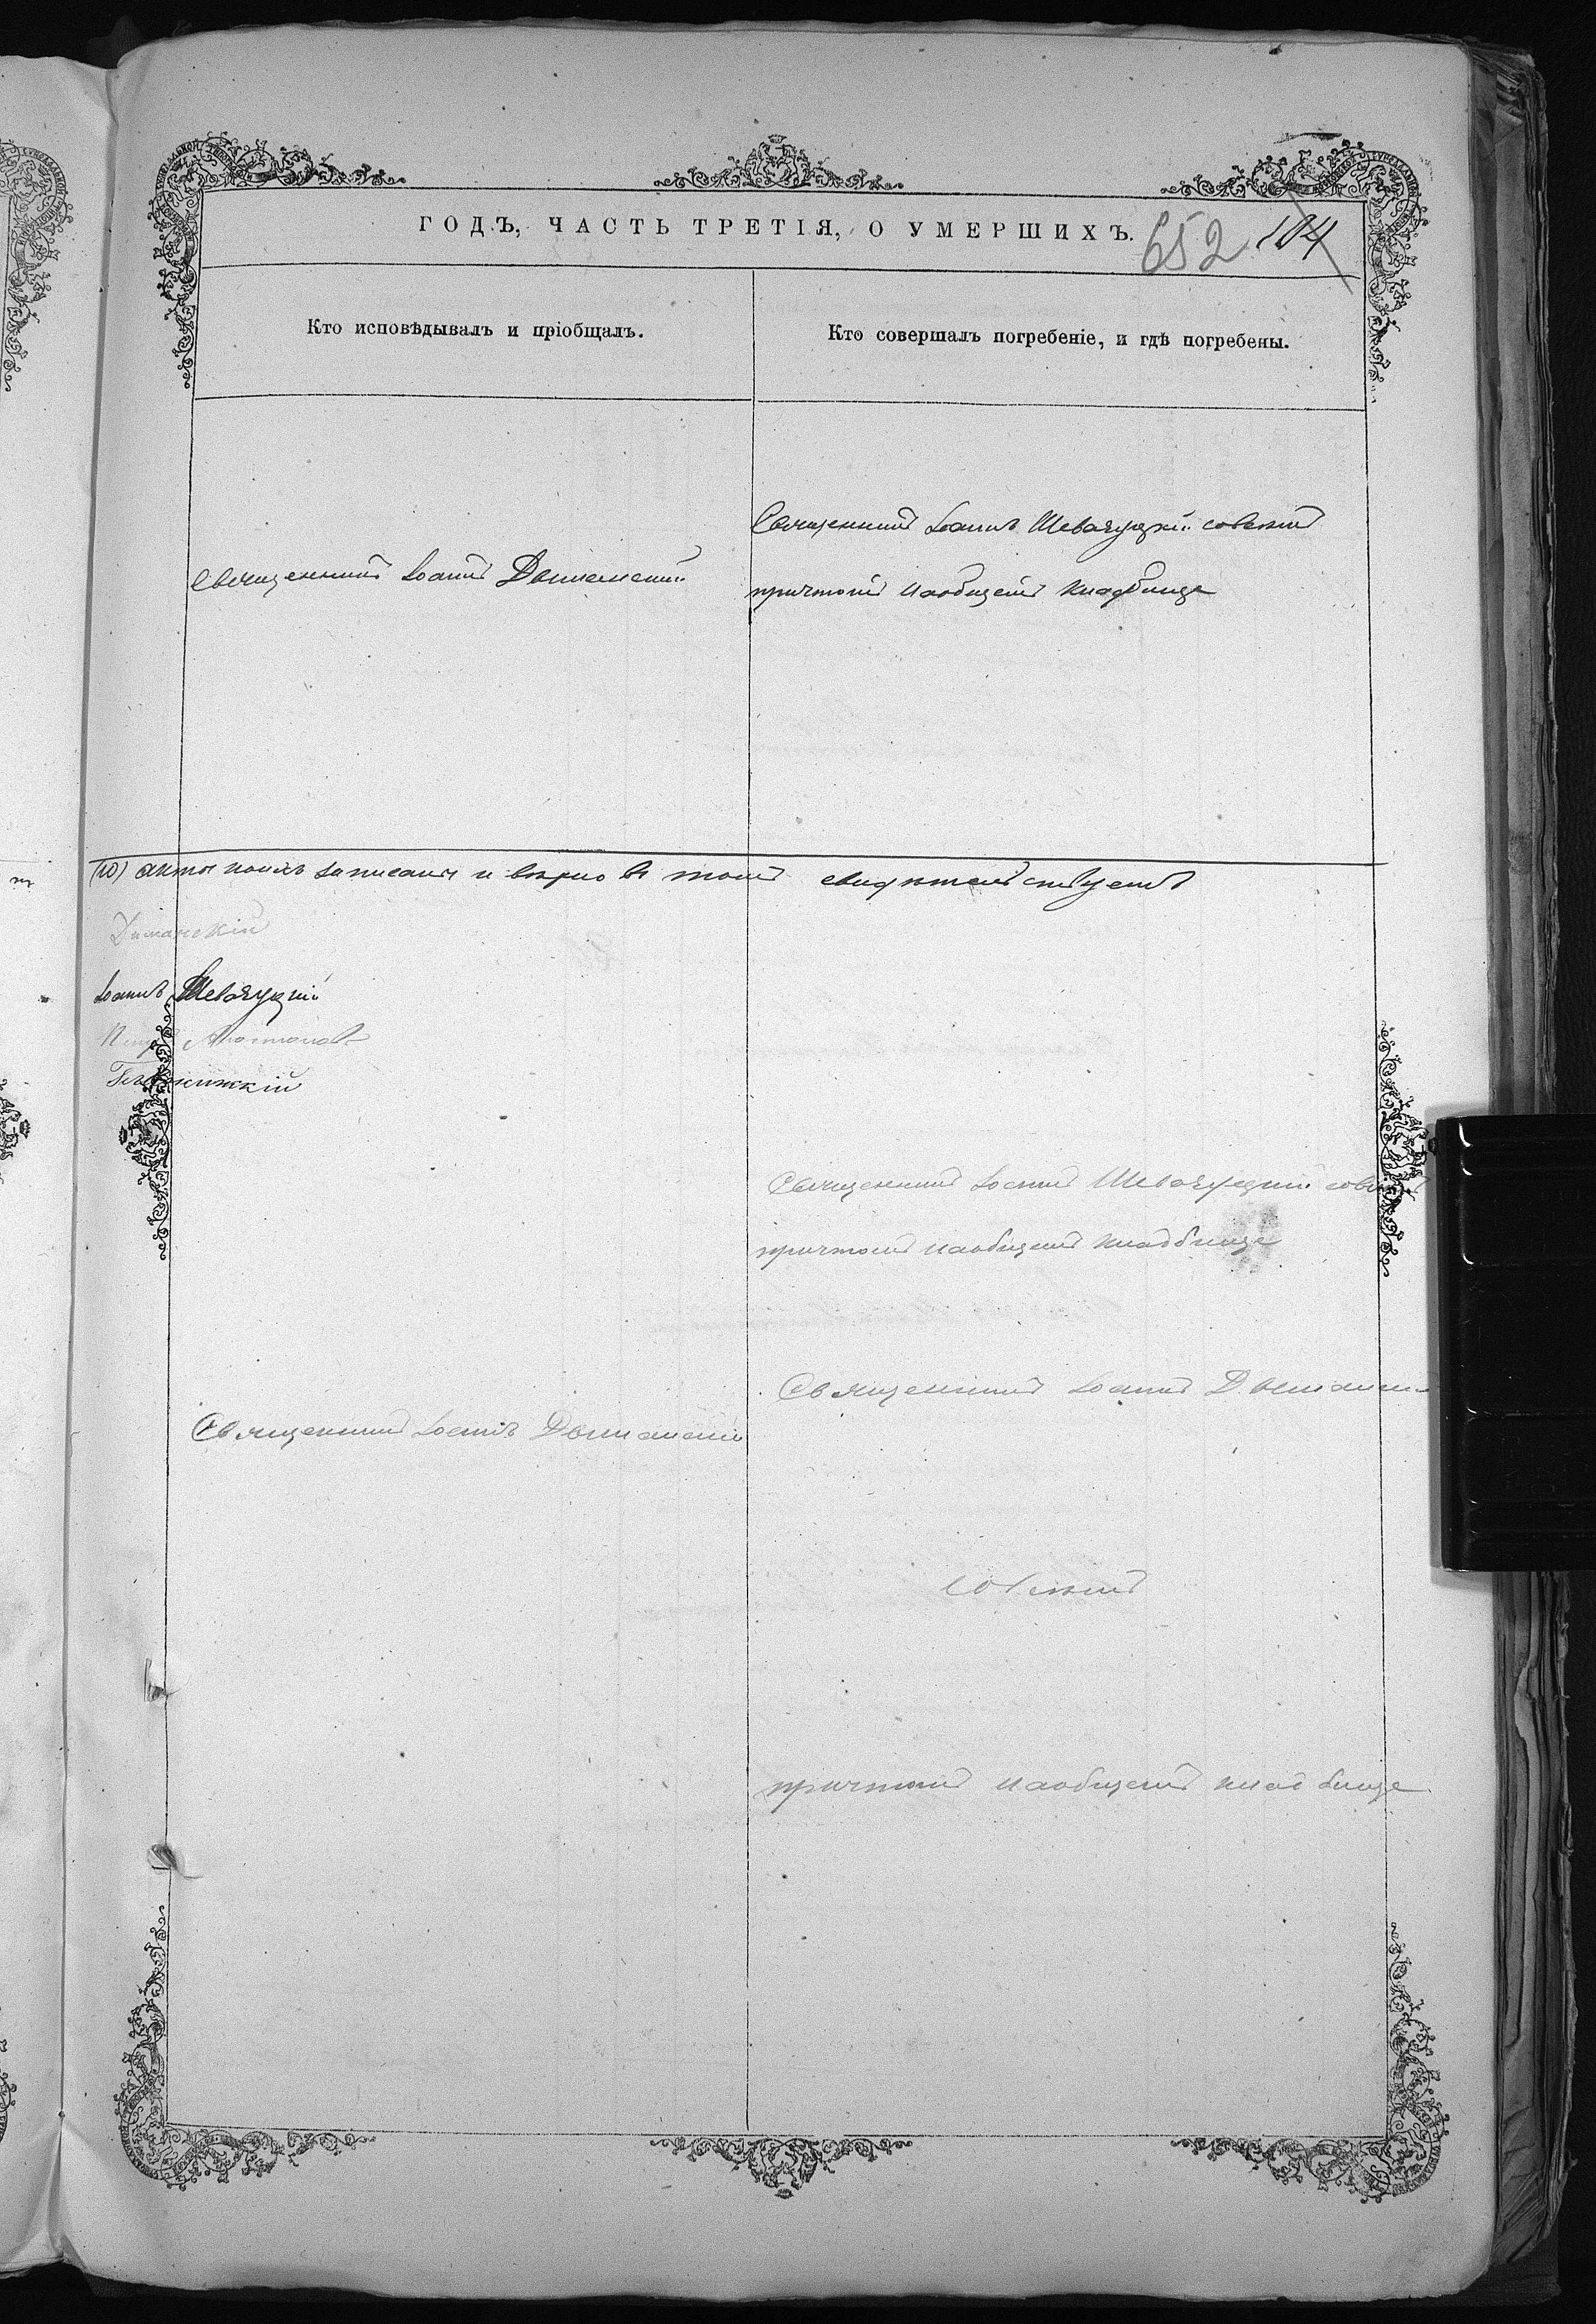 ГОДЪ, ЧАСТЬ ТРЕТІЯ, О УМЕРШИХЪ.
652 104
Кто исповѣдывалъ и пріобщалъ.
Кто совершалъ погребеніе, и гдѣ погребены.
Священникъ Іоаннъ Шеваруцкій совсѣмъ
Священникъ Іоаннъ Дыманскій
причтомъ наобщемъ кладбище
(10) актъ записанъ и вѣрно въ томъ свидѣтельствуемъ
Дыманскій
Іоаннъ Шеваруцкій
Священникъ Іоаннъ Шеваруцкій совсѣмъ
причтомъ наобщемъ кладбище
Священникъ Іоаннъ Дыманскій
Священникъ Іоаннъ Дыманскій
совсѣмъ
причтомъ наобщемъ кладбище